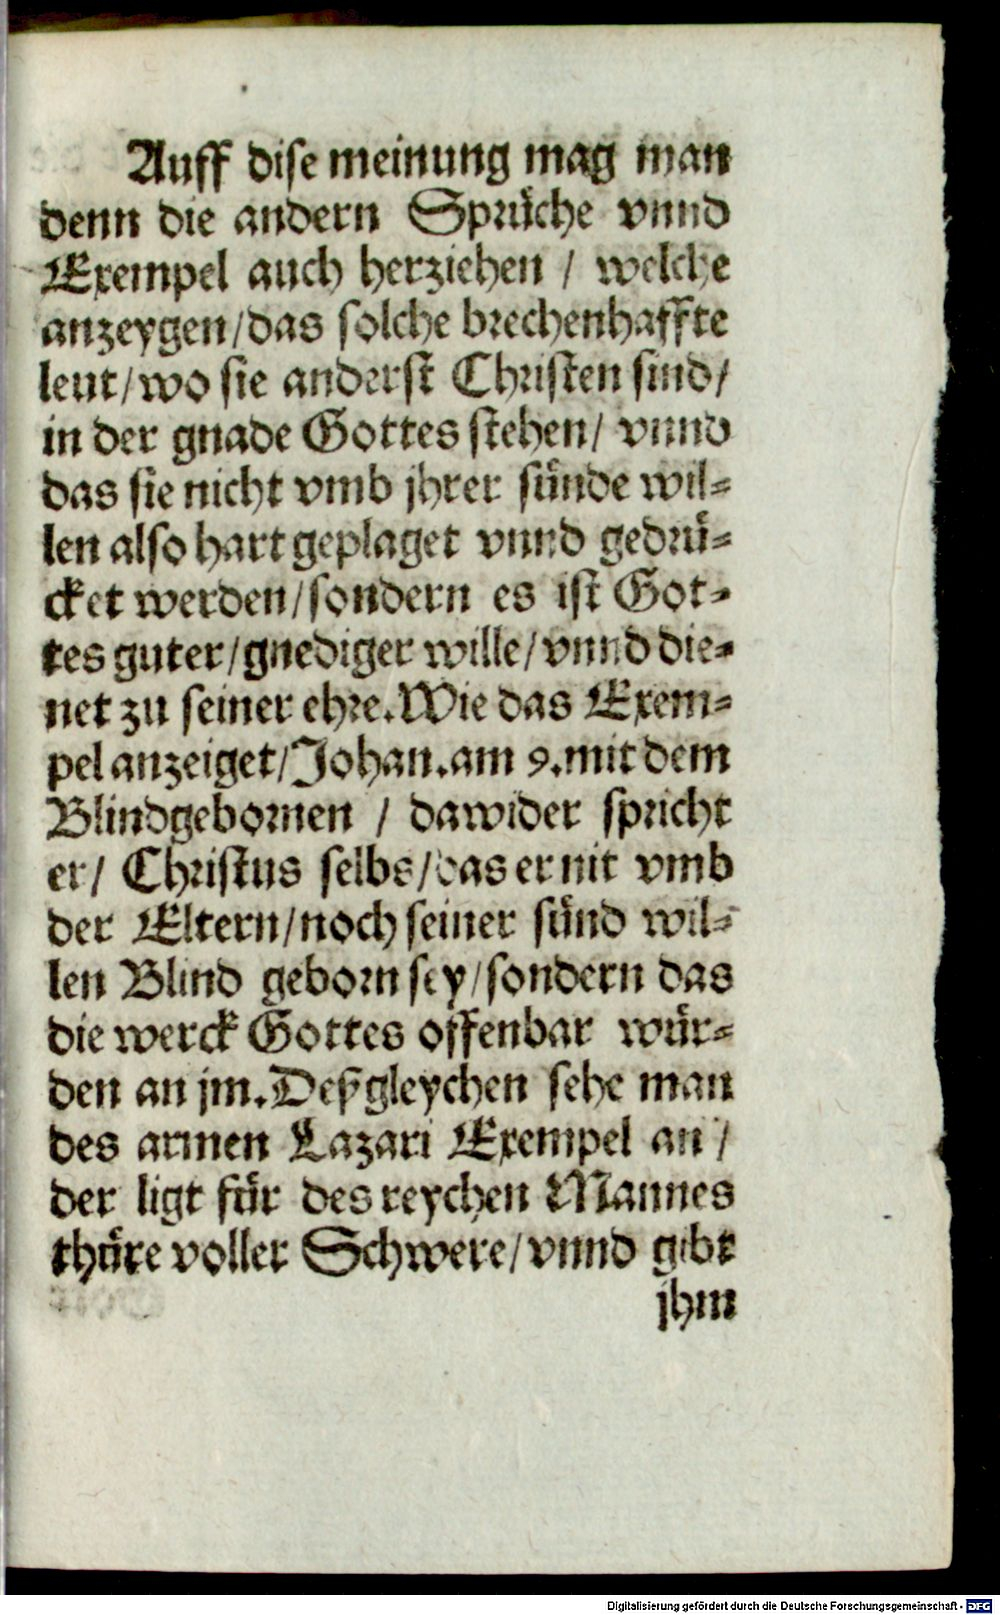 Auff dise meinung mag man
denn die andern Sprüche vnnd
Exempel auch herziehen / welche
anzeygen/das solche brechenhaffte
leut/wo sie anderst Christen sind/
in der gnade Gottes stehen/ vnnd
das sie nicht vmb jhrer sünde wil-
len also hart geplaget vnnd gedrü-
cket werden/sondern es ist Got-
tes guter/gnediger wille/vnnd die-
net zu seiner ehre.Wie das Exem-
pel anzeiget/Johan.am 9.mit dem
Blindgebornen / dawider spricht
er/ Christus selbs/das er nit vmb
der Eltern/noch seiner sünd wil-
len Blind geborn sey/sondern das
die werck Gottes offenbar wür-
den an jm.Deßgleychen sehe man
des armen Lazari Exempel an /
der ligt für des reychen Mannes
thüre voller Schwere/vnnd gibt
jhm
Digitalisierung gefördert durch die Deutsche Forschungsgemeinschaft - DFG